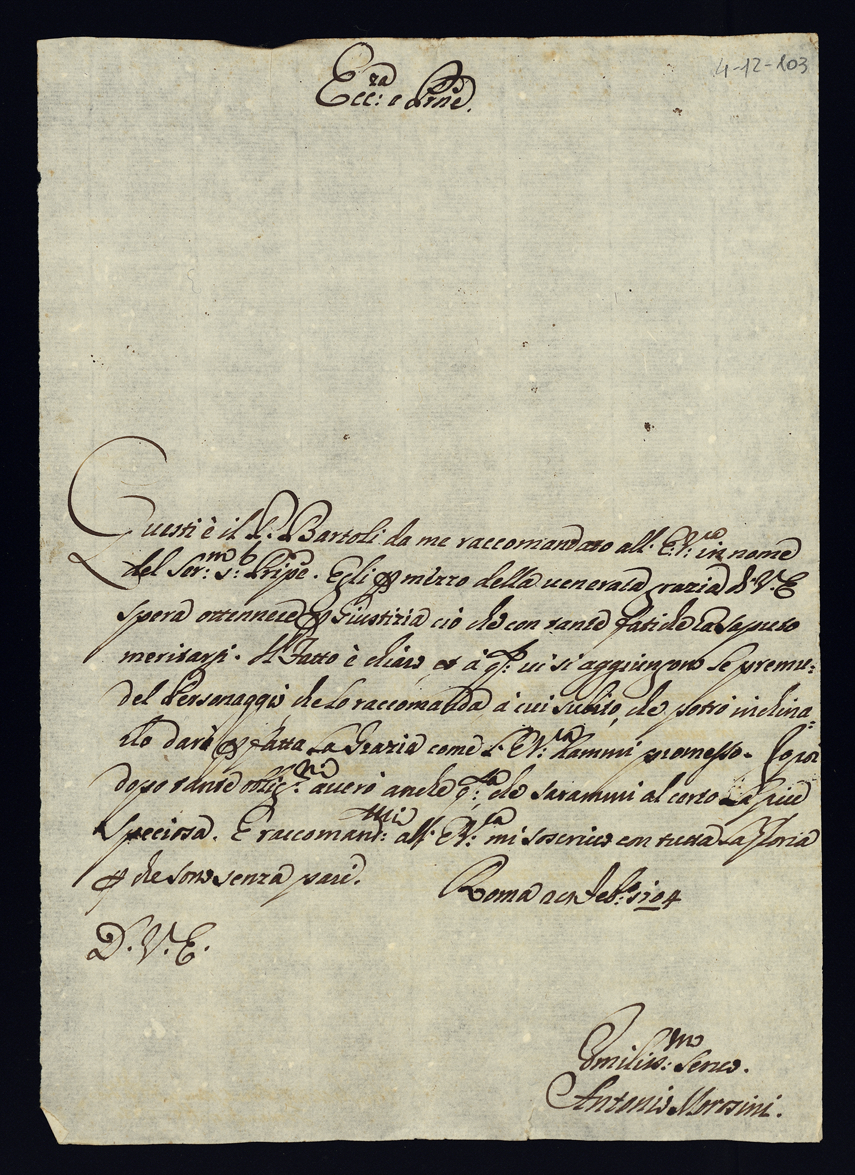 4-12-103
Ecc:za e Prne.
Questi è il S. Bartoli da me raccomandato all' E.V.: in nome
del Ser:mo S: Pripe. Egli p mezzo della venerata grazia di V.E
spera ottennere p Giustizia ciò che con tante fatiche ha saputo
meritarsi. Il Fatto è chiaro et à q: vi si aggiungono le premu:
del Personaggio che lo raccomanda à cui subito, che potrò inchina=
rlo darò p fatta la Grazia come l' E.V.:ra hammi promesso. Io poi
dopo tante oblig:ni averò anche q:sta che sarammi al certo la più
speciosa. E raccomand:mi all' E.V.:ra mi soscrivo con tutta la gloria
p che sono senza pari. Roma Feb:o 1704
D. V. E.
Omiliss:mo Servo.
Antonio Morosini.